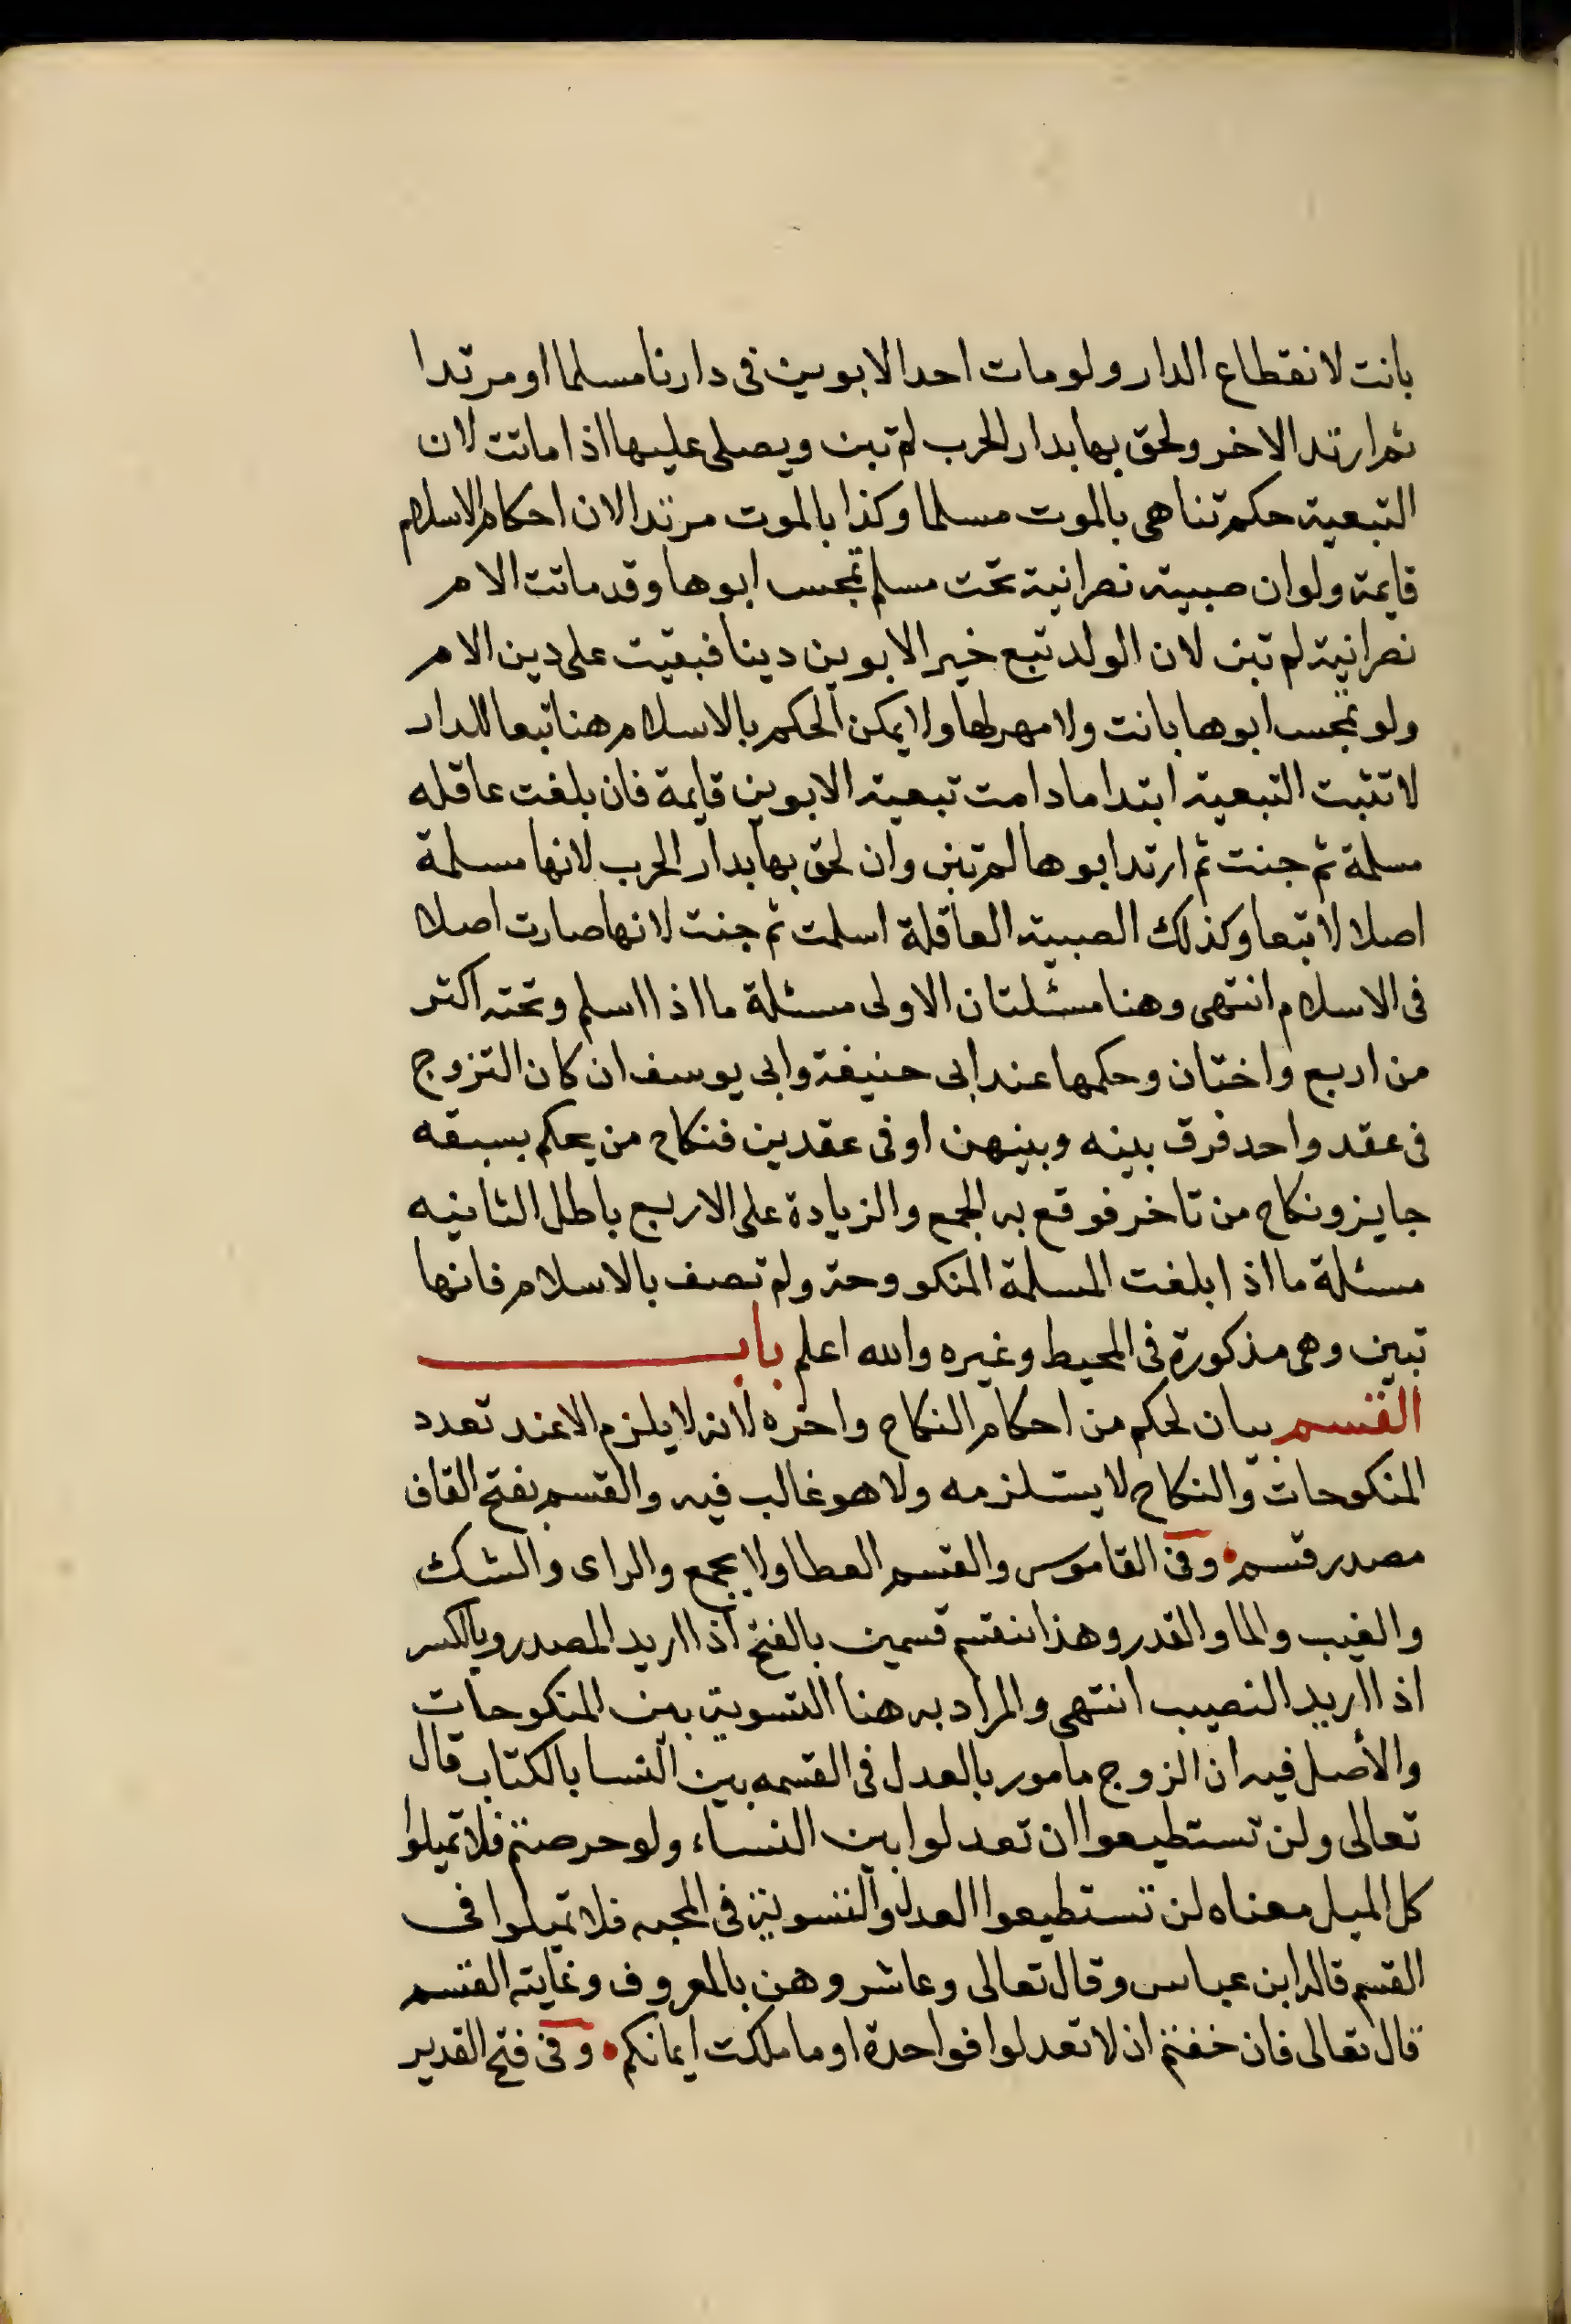 بانت لانقطاع الدار ولو مات احد الابوين فى دارنا مسلما او مرتدا
ثم ارتد الاخر ولحق بها بدار الحرب لم تبن ويصلى عليها اذا ماتت لان
التبعية حكم تناهى بالموت مسلما وكذا بالموت مرتدا لان احكام الاسلام
قايمة ولو ان صبية نصرانية تحت مسلم تمجس ابوها وقد ماتت الام
نصرانية لم تبن لان الولد تبع خير الابوين دينا فبقيت على دين الام
ولو تمجس ابوها بانت ولا مهر لها ولا يمكن الحكم بالاسلام هنا تبعا للدار
لا تثبت التبعية ابتدا ما دامت تبعية الابوين قايمة فان بلغت عاقله
مسلمة ثم جنت ثم ارتد ابوها لم تبن وان لحق بها بدار الحرب لانها مسلمة
اصلا لا تبعا وكذلك الصبية العاقلة اسلمت ثم جنت لانها صارت اصلا
فى الاسلام انتهى وهنا مسئلتان الاولى مسئلة ما اذا اسلم وتحته اكثر
من اربع واختان وحكمها عند ابى حنيفة وابى يوسف ان كان التزوج
فى عقد واحد فرق بينه وبينهن او فى عقدين فنكاح من يحكم بسبقه
جايز ونكاح من تاخر فوقع به الجمع والزيادة على الاربع باطل الثانيه
مسئلة ما اذا بلغت المسلمة المنكووحة ولم تصف بالاسلام فانها
تبين وهى مذكورة فى المحيط وغيره والله اعلم باب
القسم بيان لحكم من احكام النكاح واخره لانه لا يلزم الا عند تعدد
المنكوحات والنكاح لا يستلزمه ولا هو غالب فيه والقسم بفتح القاف
مصدر قسم وفى القاموس والقسم العطا ولا يجمع والراى والشك
والغيب والما والقدر وهذا ينقسم قسمين بالفتح اذا اريد المصدر وبالكسر
اذا اريد النصيب انتهى والمراد به هنا التسوية بين المنكوحات
والأصل فيه ان الزوج مامور بالعدل فى القسمه بين النسا بالكتاب قال
تعالى ولن تستطيعوا ان تعدلوا بين النساء ولو حرصتم فلا تميلوا
كل الميل معناه لن تستطيعوا العدل والتسوية فى المحبه فلا تميلوا فى
القسم قاله ابن عباس وقال تعالى وعاشروهن بالمعروف وغايته القسم
قال تعالى فان خفتم ان لا تعدلوا فواحدة او ما ملكت ايمانكم وفى فتح القدير